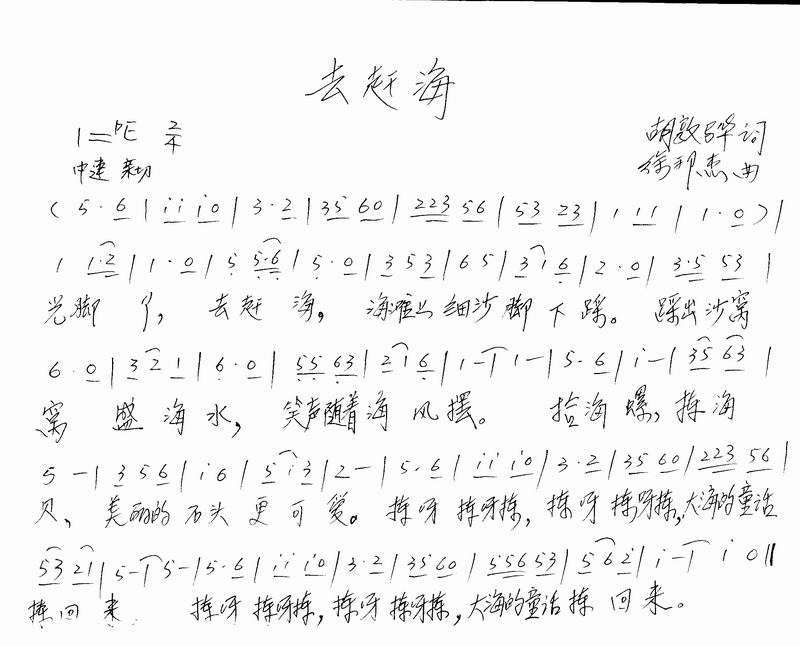 去赶海
1=♭E 2/4 胡敦骅词
中速 亲切 徐邦杰曲
(5·6|i i i 0|3·2|35 60|223 56|53 23|1 11|1·0)|
1 1·2|1·0|5 5·6|5·0|3 5 3|6 5|3 1 6|2·0|3·5 53|
光脚丫,去赶海,海滩上细沙脚下踩。踩出沙窝
6·0|3 2 1|6·0|55 63|2 1 6|1-|1-|5·6|i-|35 63|
窝盛海水,笑声随着海风摆。拾海螺,拣海
5-|3 5 6|i 6|5 i 3|2-|5·6|i i i 0|3·2|35 60|223 56|
贝,美丽的石头更可爱。拣呀拣呀拣,拣呀拣呀拣,大海的童话
53 21|5-|5-|5·6|i i i 0|3·2|35 60|556 53|5 6 2|i-|i 0‖
拣回来。拣呀拣呀拣,拣呀拣呀拣,大海的童话拣回来。